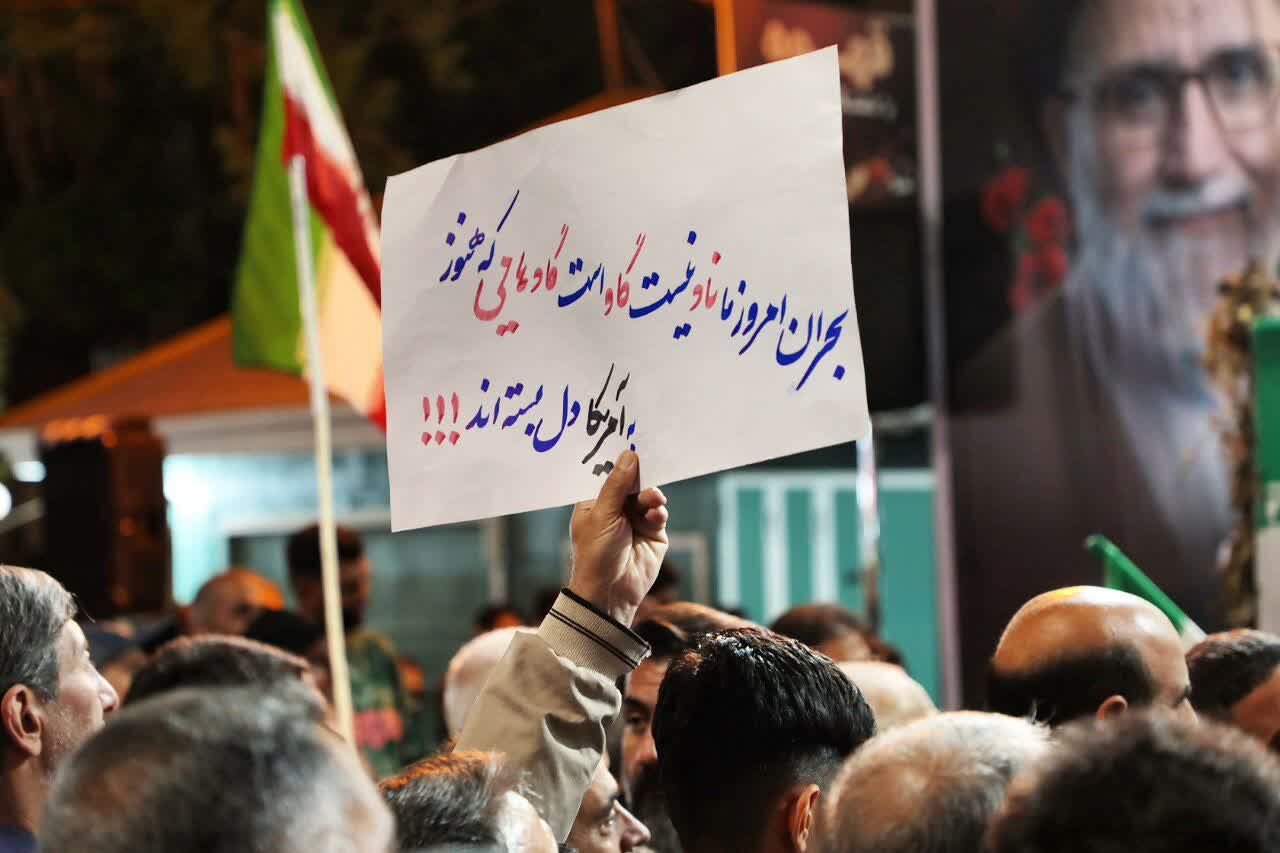 بحران امروز ما ناو نیست گاو است گاوهایی که هنوز
به آمریکا دل بسته اند !!!